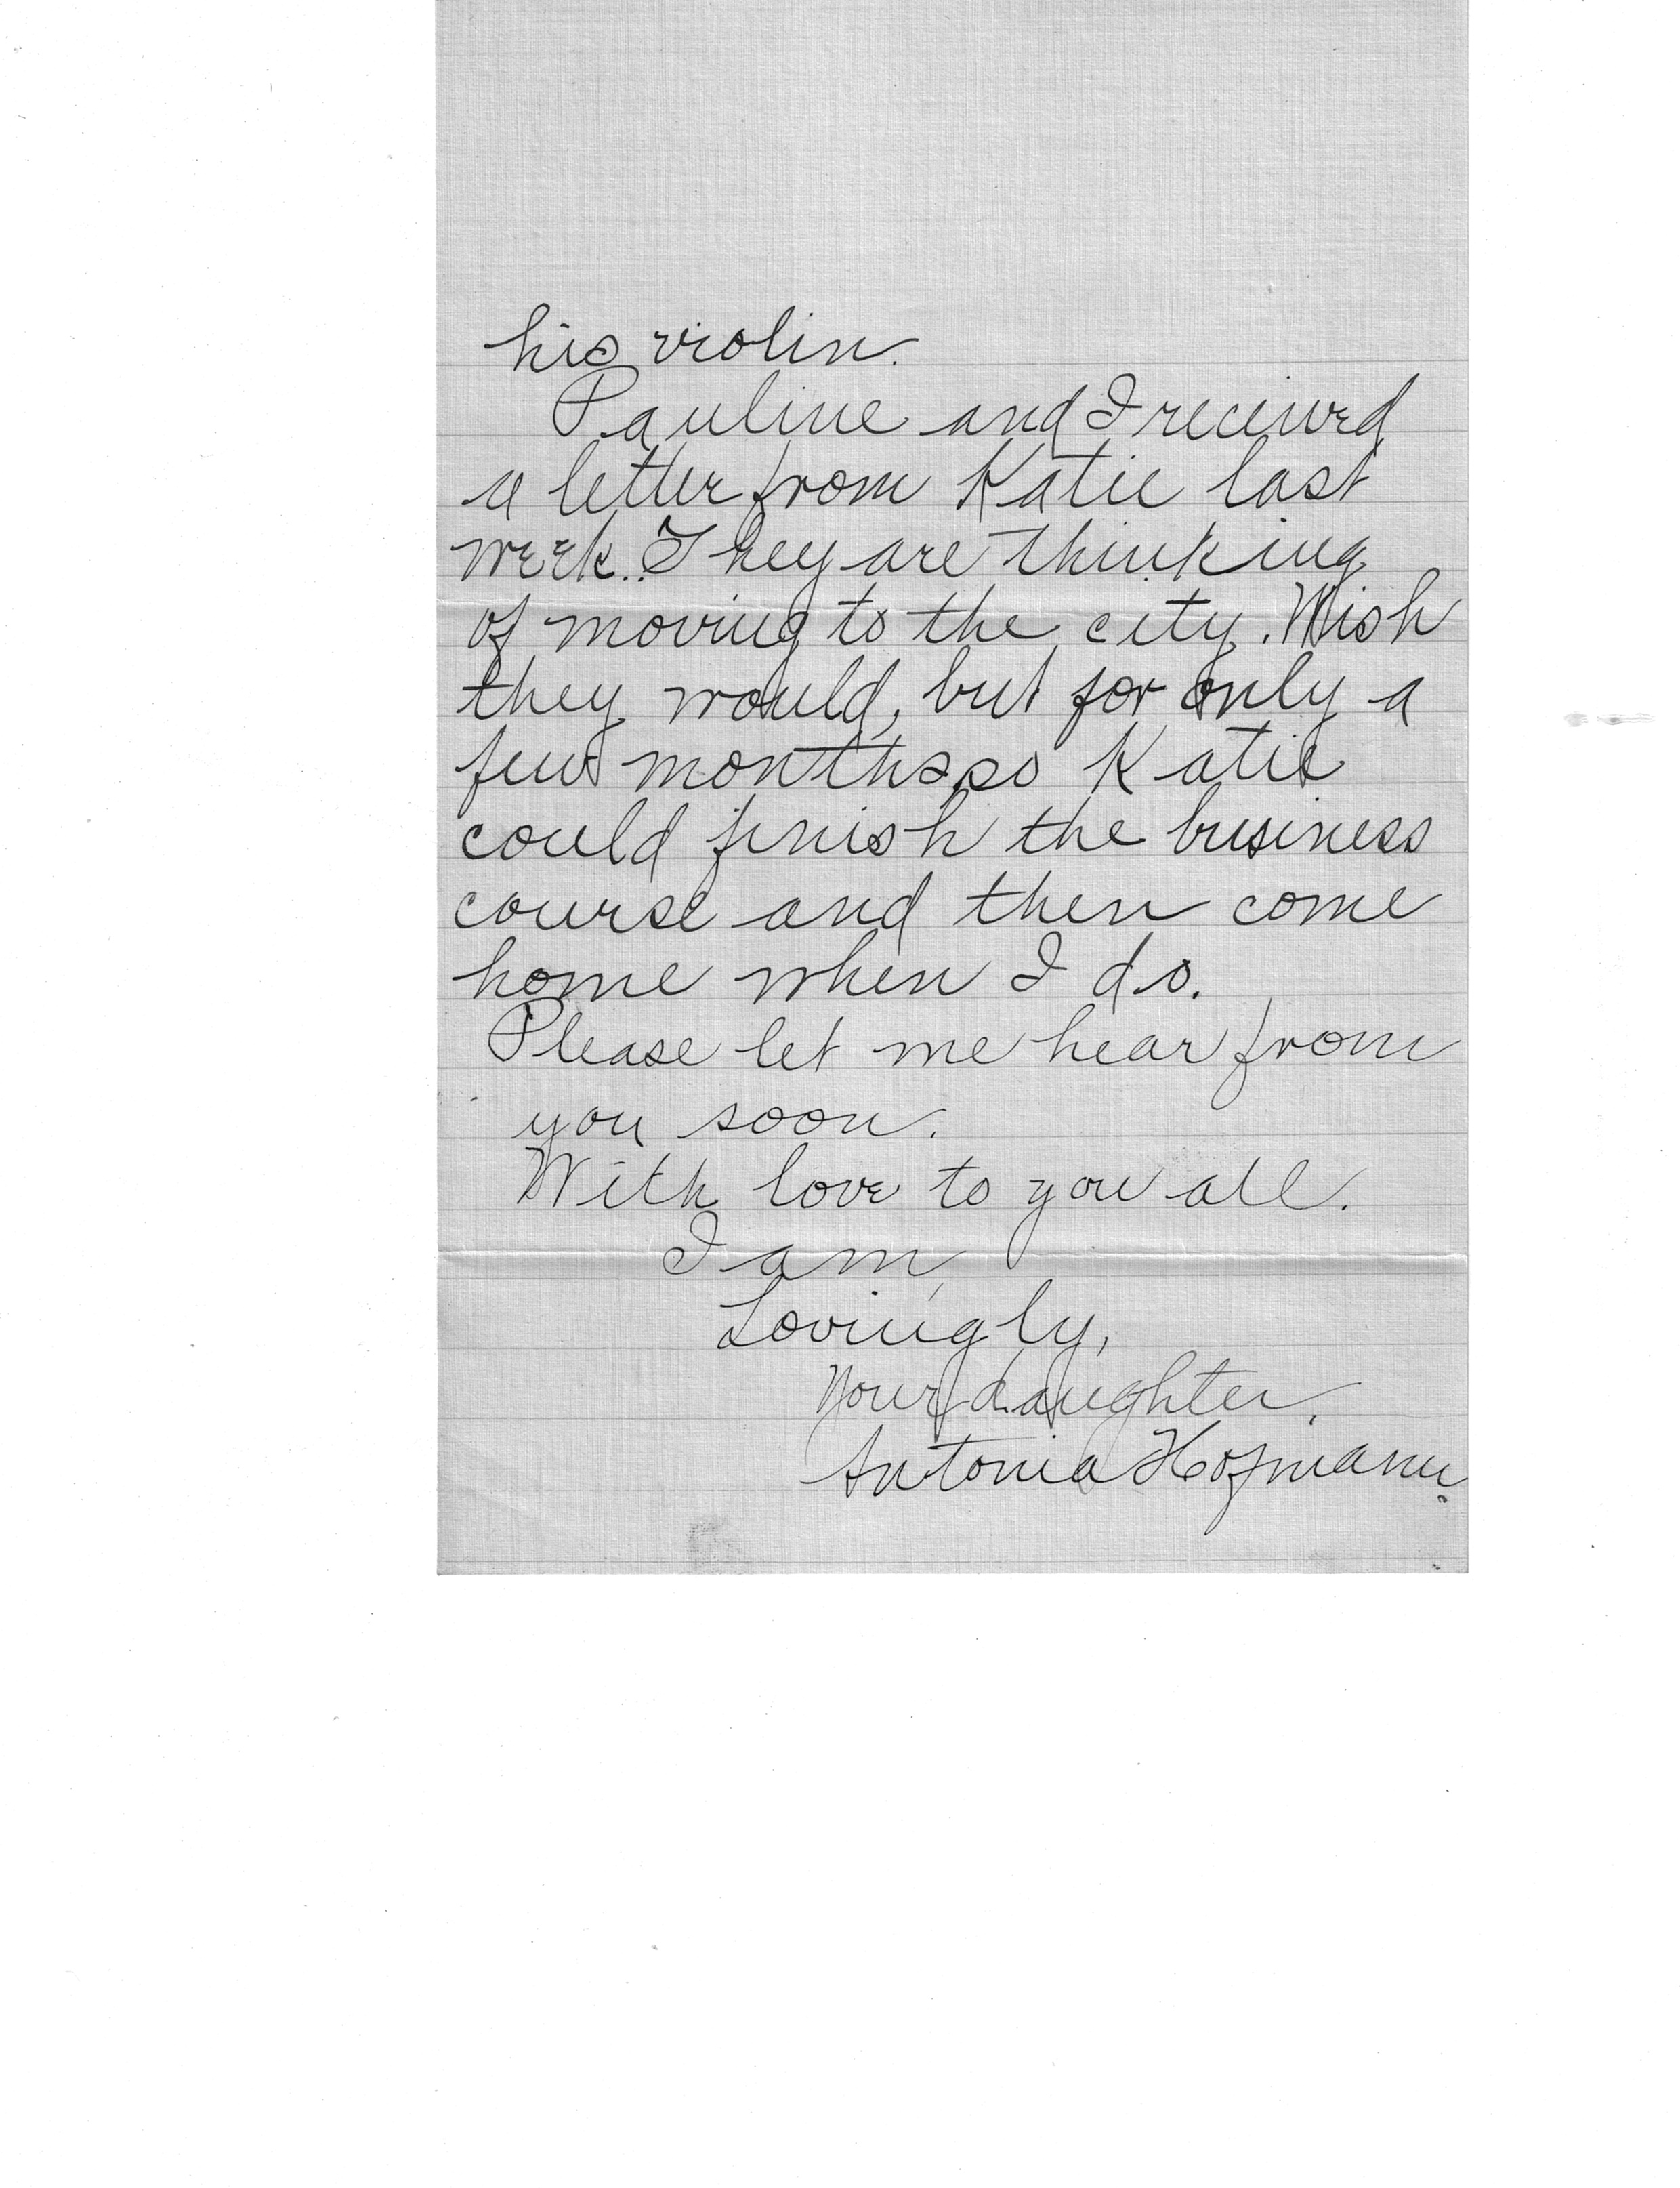 his violin.
Pauline and I received
a letter from Katie last
week. They are thinking
of moving to the city. Wish
they would, but for only a
few months so Katie
could finish the business
course and then come
home when I do.
Please let me hear from
you soon.
With love to you all.
I am,
Lovingly,
Your daughter,
Antonia Hofmann.